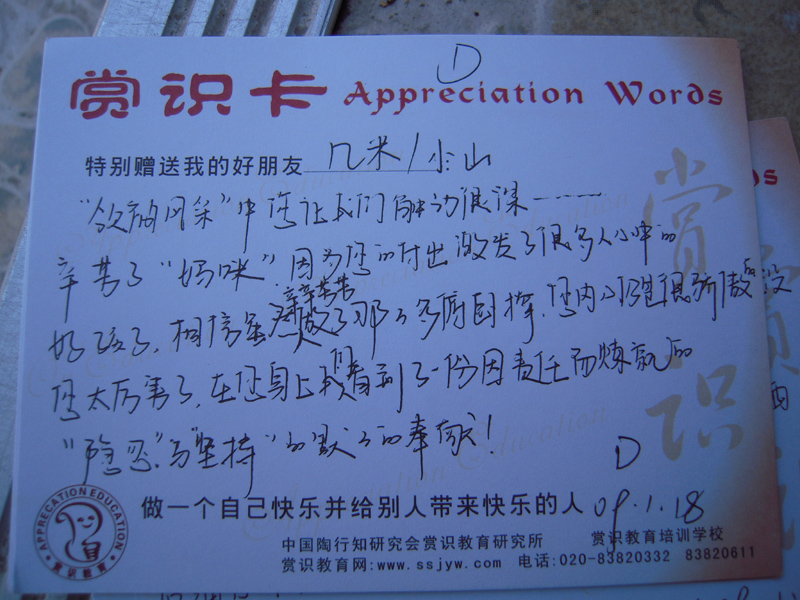 D
赏识卡 Appreciation Words
特别赠送我的好朋友 几米/小山
中您让我们触动很深————
辛苦了“妈咪”,因为您的付出激发了很多人心中的
辛辛苦苦
好孩子,相信虽然做了那么多,您内心还是很骄傲的没
您太厉害了,在您身上我们看到了一份因责任而炼就的
“隐忍”与“坚持”的默默的奉献!
D
做一个自己快乐并给别人带来快乐的人 09.1.18
中国陶行知研究会赏识教育研究所 赏识教育培训学校
赏识教育网:www.ssjyw.com 电话:020-83820332 83820611
APPRECATION EDUCATION
赏识教育
赏识
ds